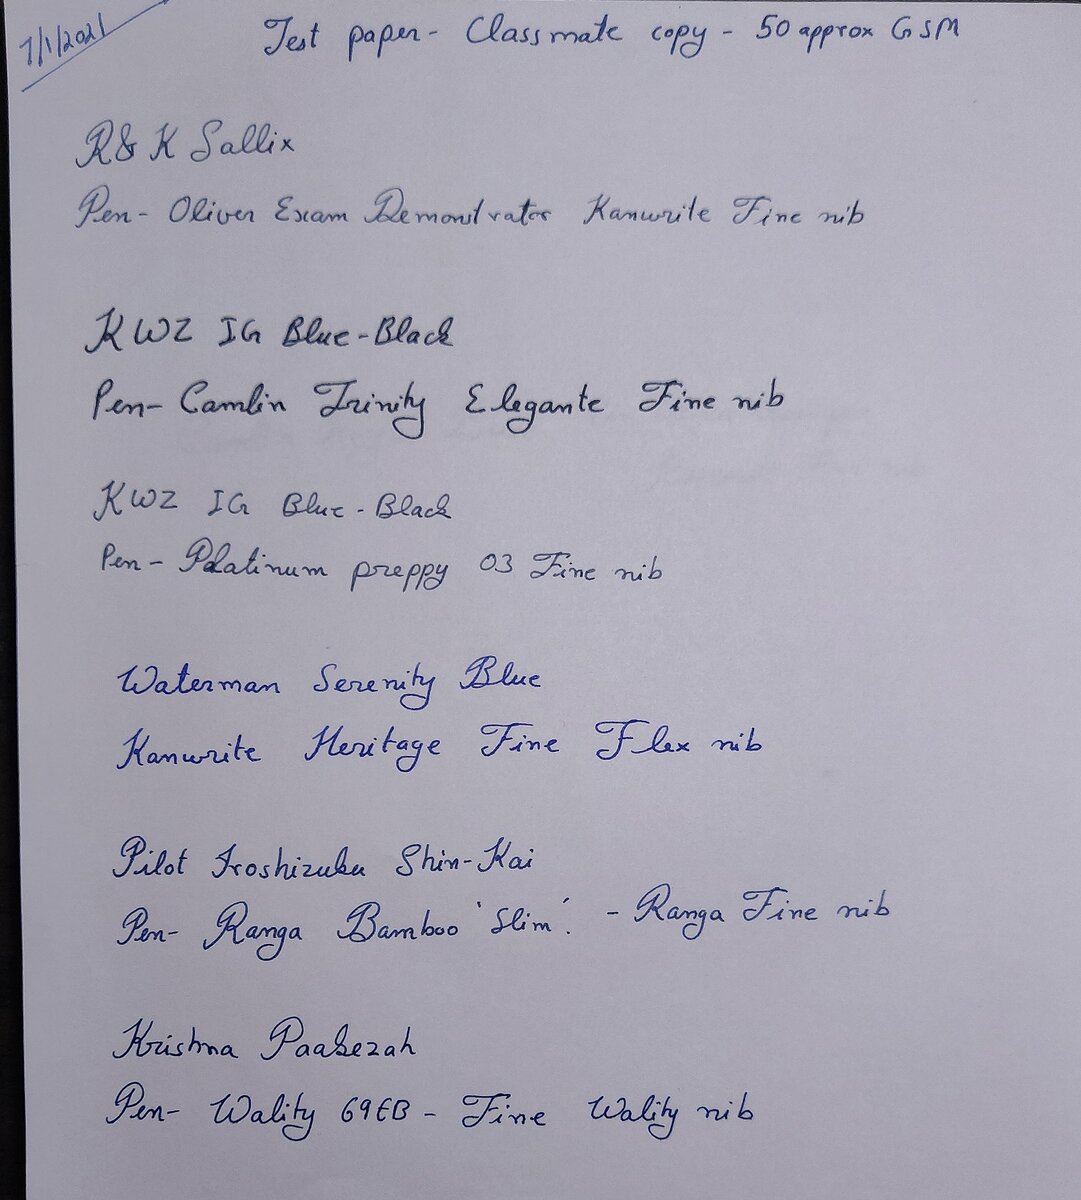 7/1/2021
Test paper- Classmate copy - 50 approx GSM
R&K Sallix
Pen- Oliver Exam Demonstrator Kanwrite Fine nib
KWZ IG Blue-Black
Pen- Camlin Trinity Elegante Fine nib
KWZ IG Blue-Black
Pen- Platinum preppy 03 Fine nib
Waterman Serenity Blue
Kanwrite Heritage Fine Flex nib
Pilot Iroshizuku Shin-Kai
Pen- Ranga Bamboo 'Slim'. - Ranga Fine nib
Krishna Paakezah
Pen- Wality 69EB - Fine Wality nib